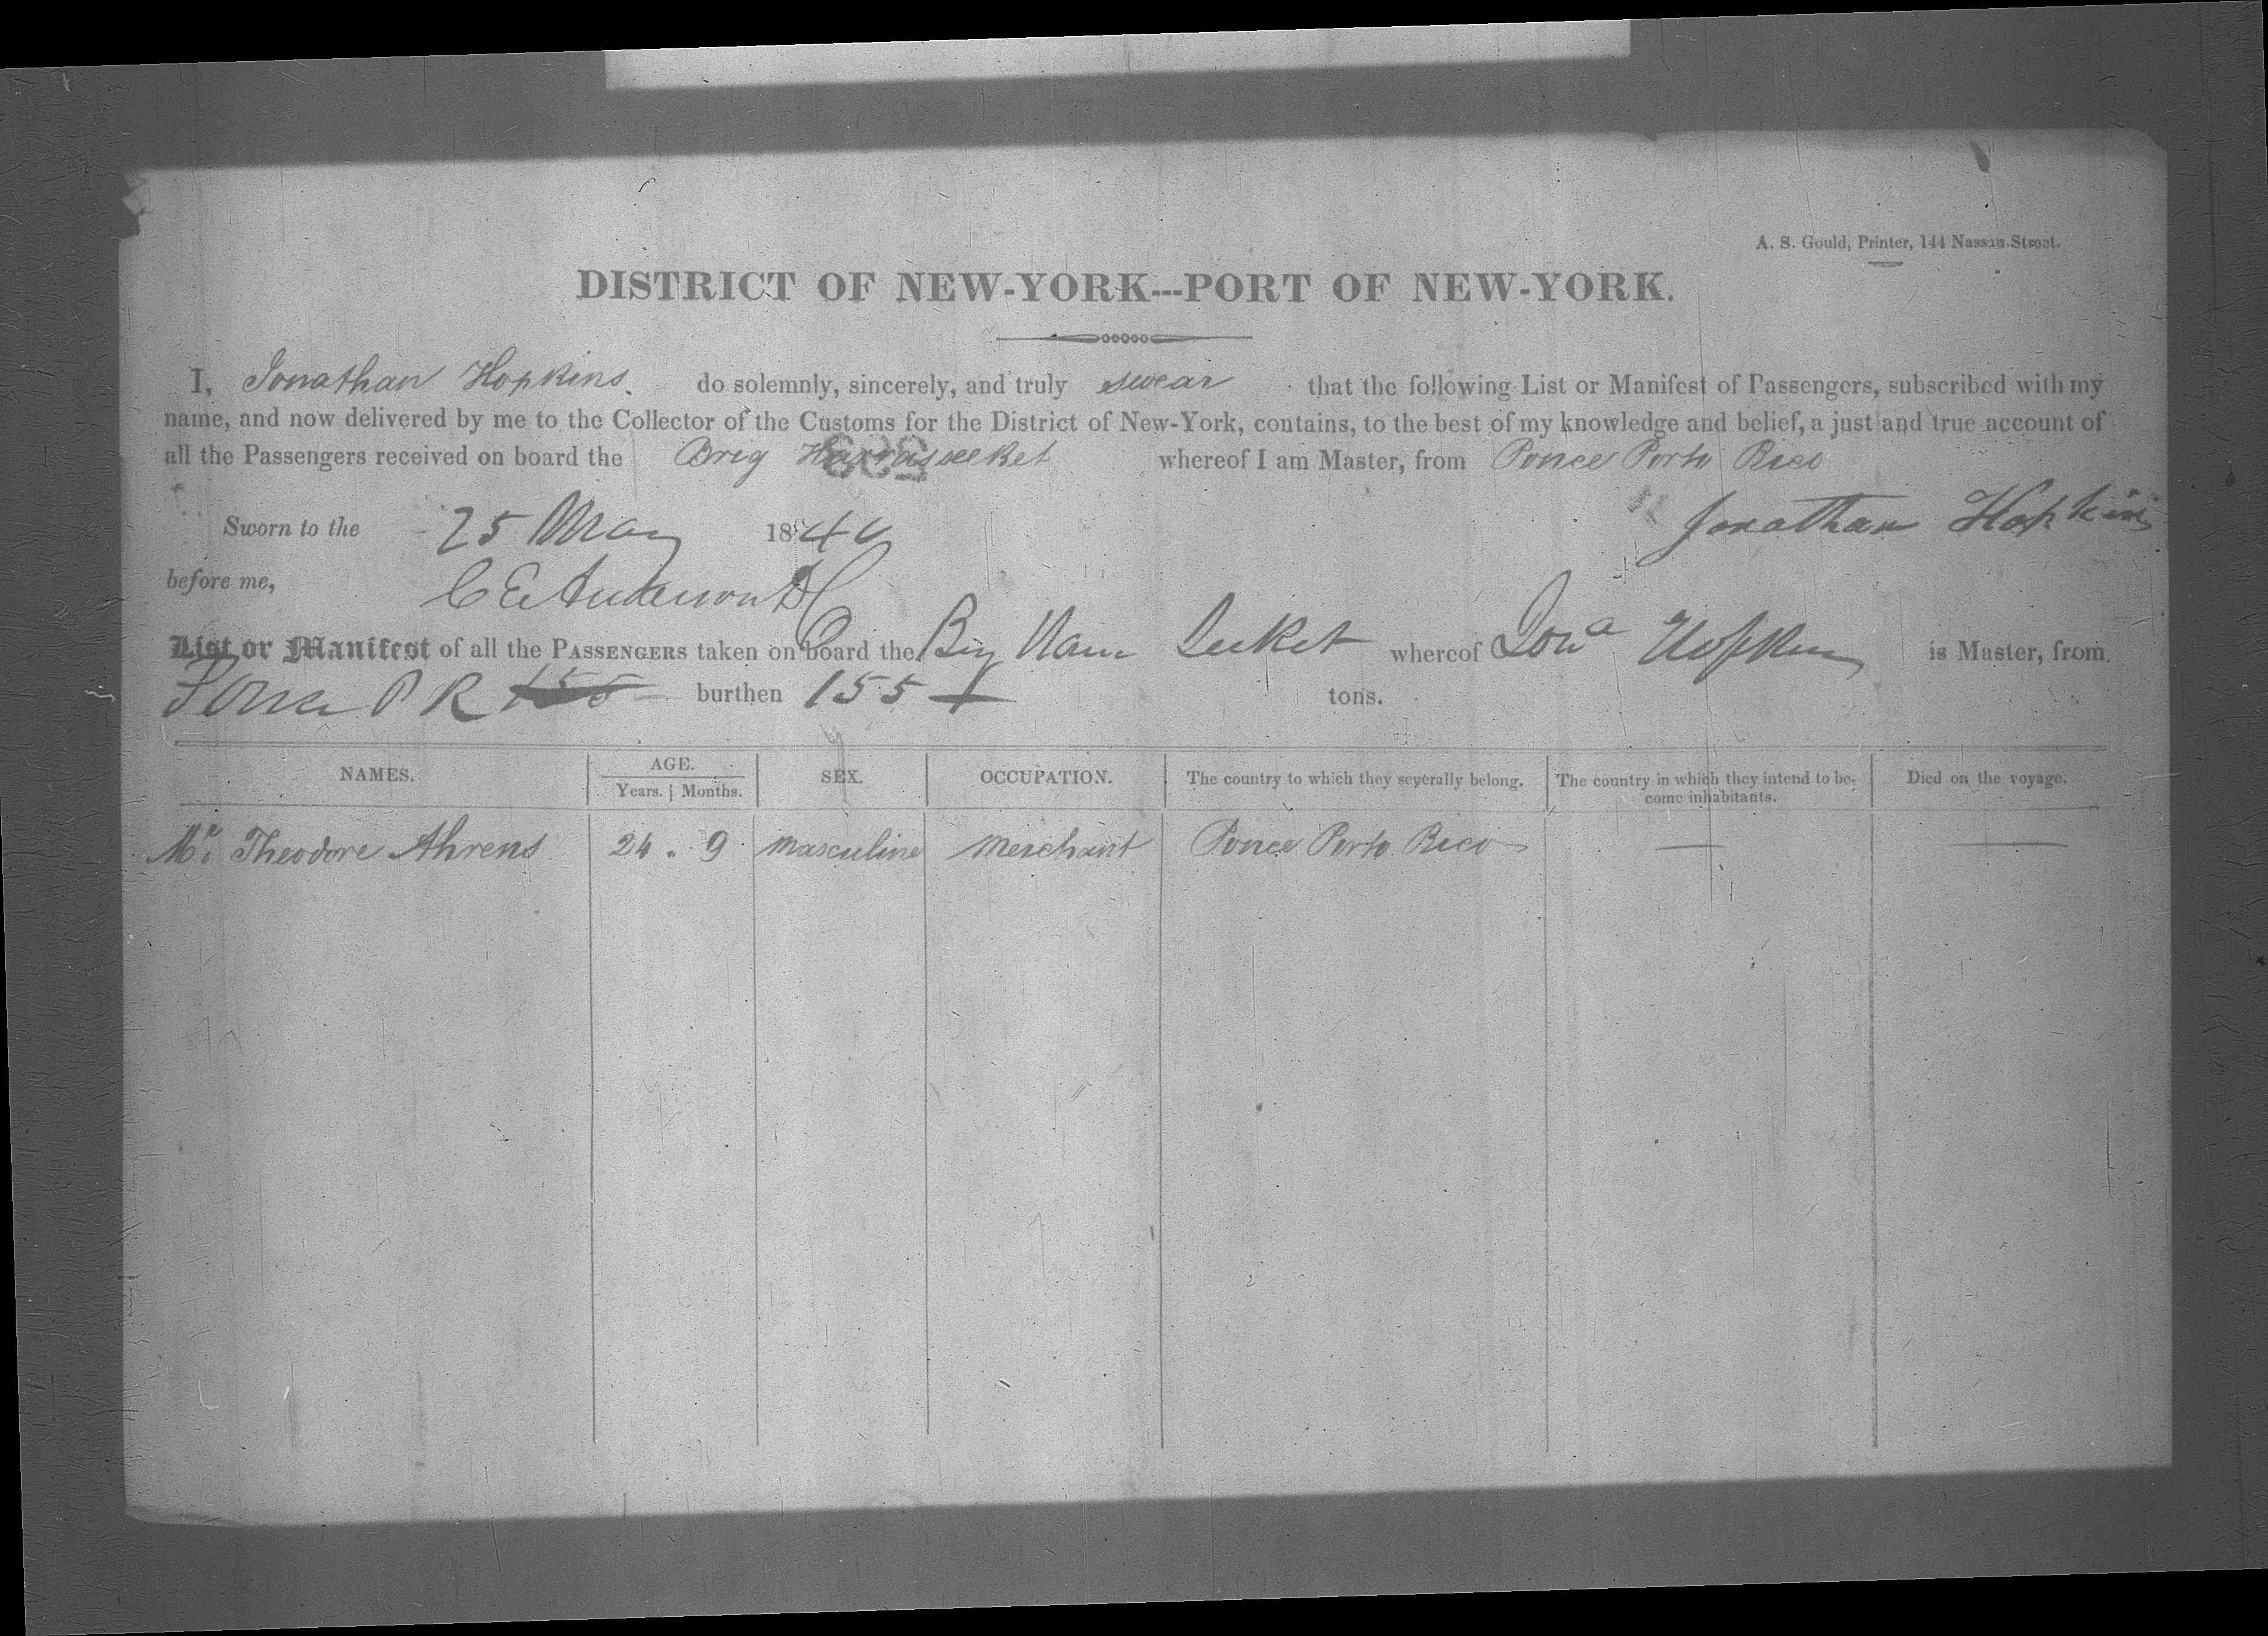 A. S. Gould, Printer, 144 Nassau-Street.
DISTRICT OF NEW-YORK---PORT OF NEW-YORK.
I, Jonathan Hopkins do solemnly, sincerely, and truly swear that the following List or Manifest of Passengers, subscribed with my
name, and now delivered by me to the Collector of the Customs for the District of New-York, contains, to the best of my knowledge and belief, a just and true account of
all the Passengers received on board the Brig Harraseeket whereof I am Master, from Ponce Porto Rico
Jonathan Hopkins
Sworn to the 25 May 1840
before me, C E Anderson
List or Manifest of all the PASSENGERS taken on board the Brig whereof Jona Hopkins is Master, from
Ponce P R 155 burthen 155 tons.
NAMES. AGE. SEX. OCCUPATION. The country to which they severally belong. The country in which they intend to be- Died on the voyage.
Years. Months. come inhabitants.
Mr. Theodore Ahrens 24 . 9 Masculine Merchant Ponce Porto Rico — —